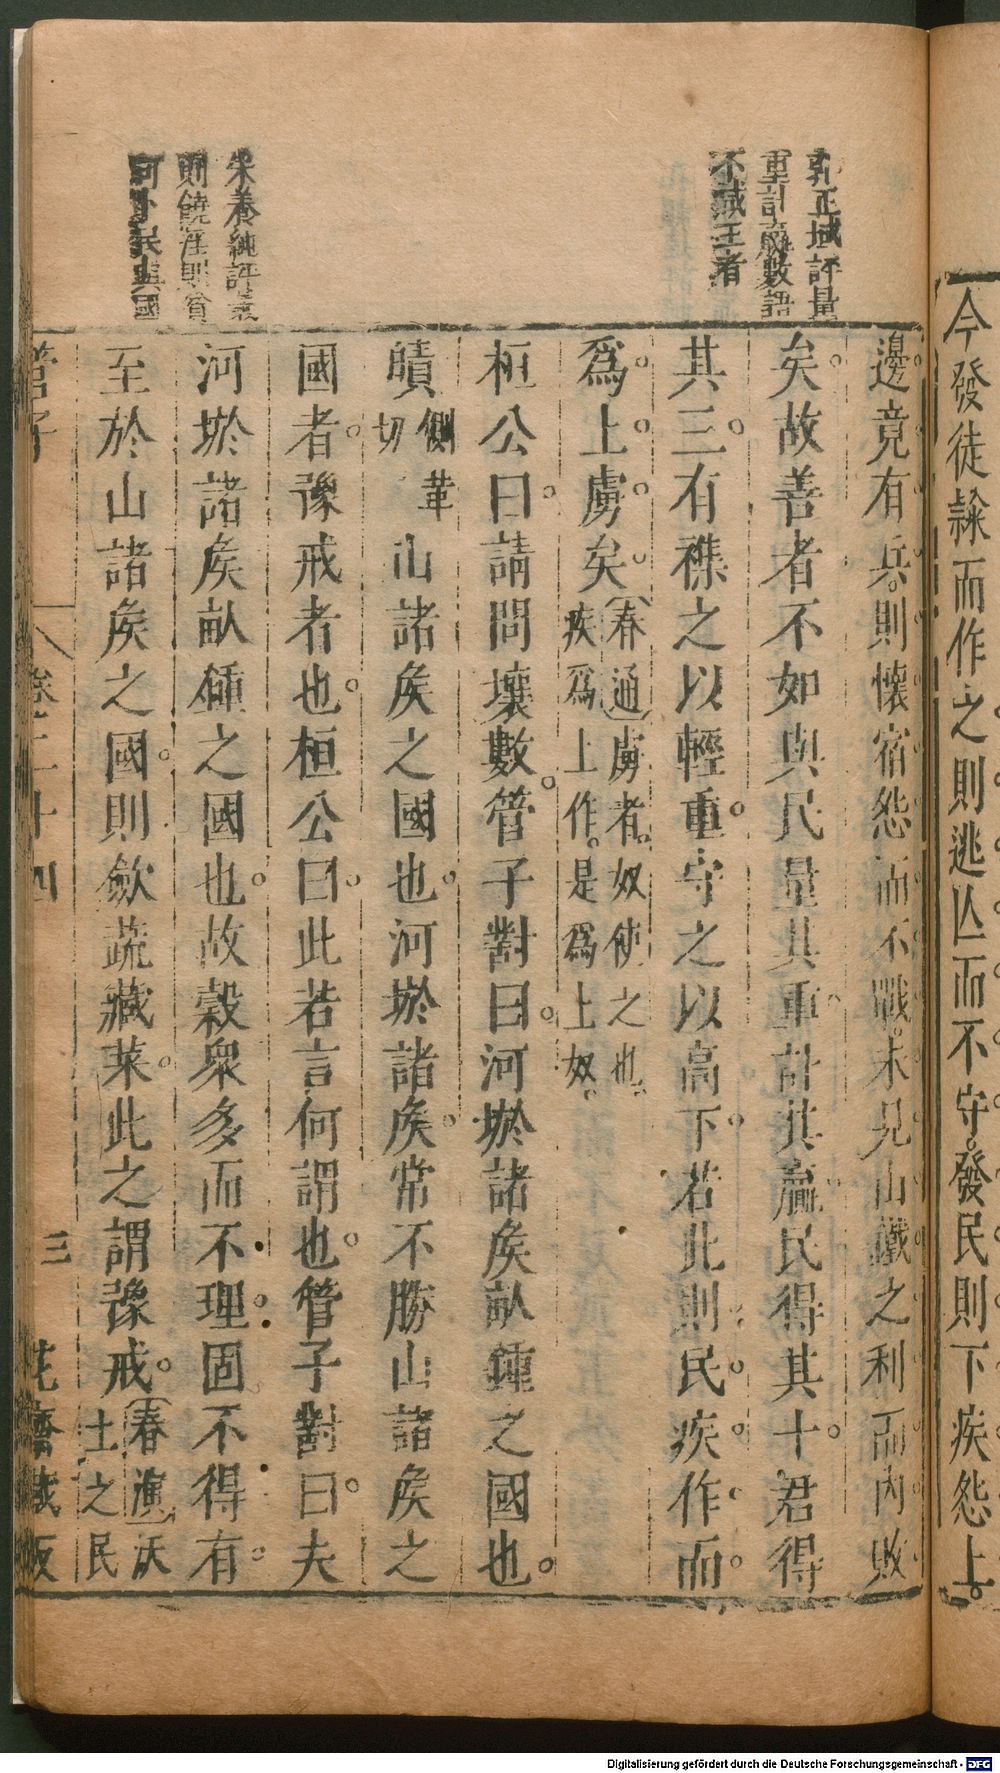 今發徒隸而作之則逃亾而不守發民則下疾怨上
郭正域評量
重計贏數語
不減王者
朱養純評叢
則饒
邊竟有兵則懷宿怨而不戰未見山鐵之利而內敗
矣故善者不如與民量其重計其贏民得其十君得
其三有襍之以輕重守之以高下若此則民疾作而
爲上虜矣(春通)虜者奴使之也
疾爲上作是爲上奴
桓公曰請問壤數管子對曰河𡎺諸矦畝鍾之國也
䃮側革
切山諸矦之國也河𡎺諸矦常不勝山諸矦之
國者豫戒者也桓公曰此若言何謂也管子對曰夫
河𡎺諸矦畝鍾之國也故穀衆多而不理固不得有
至於山諸矦之國則斂蔬藏菜此之謂豫戒(春演)沃
土之民
管子
卷二十四
三
花齋藏板
Digitalisierung gefördert durch die Deutsche Forschungsgemeinschaft - DFG